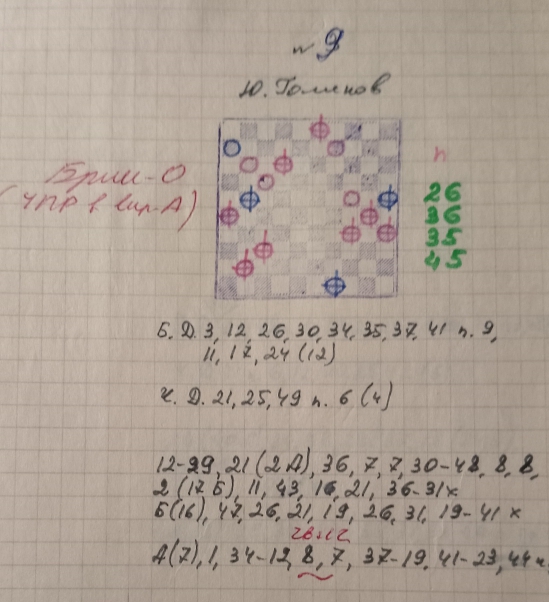 n 9
Ю. Голиков
п
26
36
35
45
Б. Д. 3, 12, 26, 30, 34, 35, 37, 41 п. 9,
11, 17, 24 (12)
Ч. Д. 21, 25, 49 п. 6 (4)
12-29, 21 (2А), 36, 7, 7, 30-48, 8, 8,
2 (17Б), 11, 43, 16, 21, 36-31x
Б(16), 47, 26, 21, 19, 26, 31, 19-41 x
А(7), 1, 34-12, 8, 7, 37-19, 41-23, 44